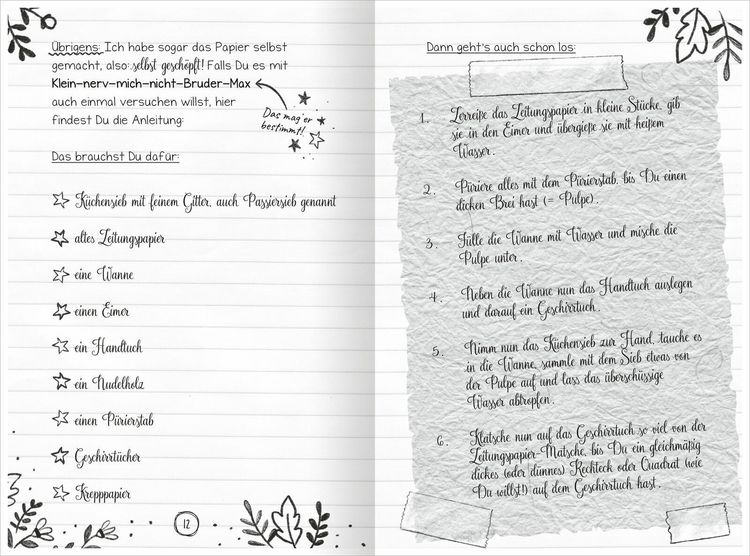 Übrigens: Ich habe sogar das Papier selbst
gemacht, also: selbst geschöpft! Falls Du es mit
Klein-nerv-mich-nicht-Bruder-Max
auch einmal versuchen willst, hier
findest Du die Anleitung:
Das mag er
bestimmt!
Das brauchst Du dafür:
Küchensieb mit feinem Gitter, auch Passiersieb genannt
altes Zeitungspapier
eine Wanne
einen Eimer
ein Handtuch
ein Nudelholz
einen Pürierstab
Geschirrtücher
Krepppapier
12
Dann geht's auch schon los:
1. Zerreiße das Zeitungspapier in kleine Stücke, gib
sie in den Eimer und übergieße sie mit heißem
Wasser.
2. Püriere alles mit dem Pürierstab, bis Du einen
dicken Brei hast (= Pulpe).
3. Fülle die Wanne mit Wasser und mische die
Pulpe unter.
4. Neben die Wanne nun das Handtuch auslegen
und darauf ein Geschirrtuch.
5. Nimm nun das Küchensieb zur Hand, tauche es
in die Wanne, sammle mit dem Sieb etwas von
der Pulpe auf und lass das überschüssige
Wasser abtropfen.
6. Klatsche nun auf das Geschirrtuch so viel von der
Zeitungspapier-Matsche, bis Du ein gleichmäßig
dickes (oder dünnes) Rechteck oder Quadrat (wie
Du willst!) auf dem Geschirrtuch hast.